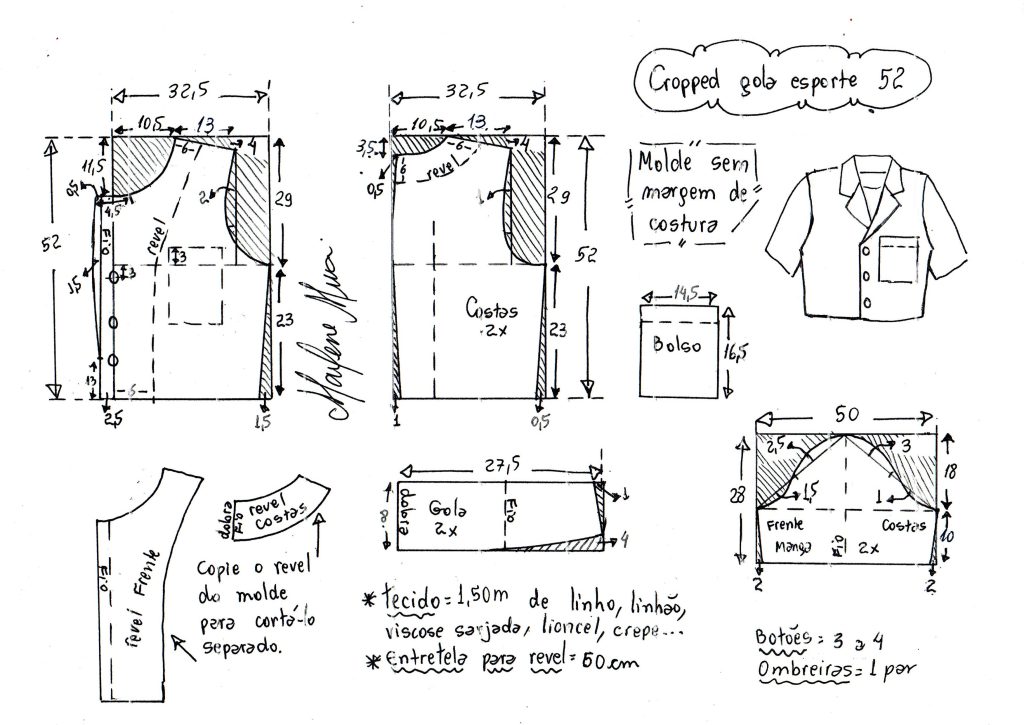 Cropped gola esporte 52
Molde sem
margem de
costura
32,5
10,5
13
6
4
11,5
0,5
4,5
Fio
revel
2
3
3
29
52
1,5
23
13
6
2,5
1,5
Marlene Mukai
32,5
10,5
13
6
4
3,5
6
revel
0,5
1
29
52
Costas
2x
23
1
0,5
14,5
Bolso
16,5
50
2,5
3
1,5
1
18
28
Frente
Costas
Manga
Fio
2x
10
2
2
Fio
revel Frente
dobra
Fio
revel
costas
Copie o revel
do molde
para cortá-lo
separado.
27,5
dobra
Gola
2x
Fio
1
4
* Tecido = 1,50m de linho, linhão,
viscose sarjada, liocel, crepe...
* Entretela para revel = 50 cm
Botões = 3 a 4
Ombreiras = 1 par